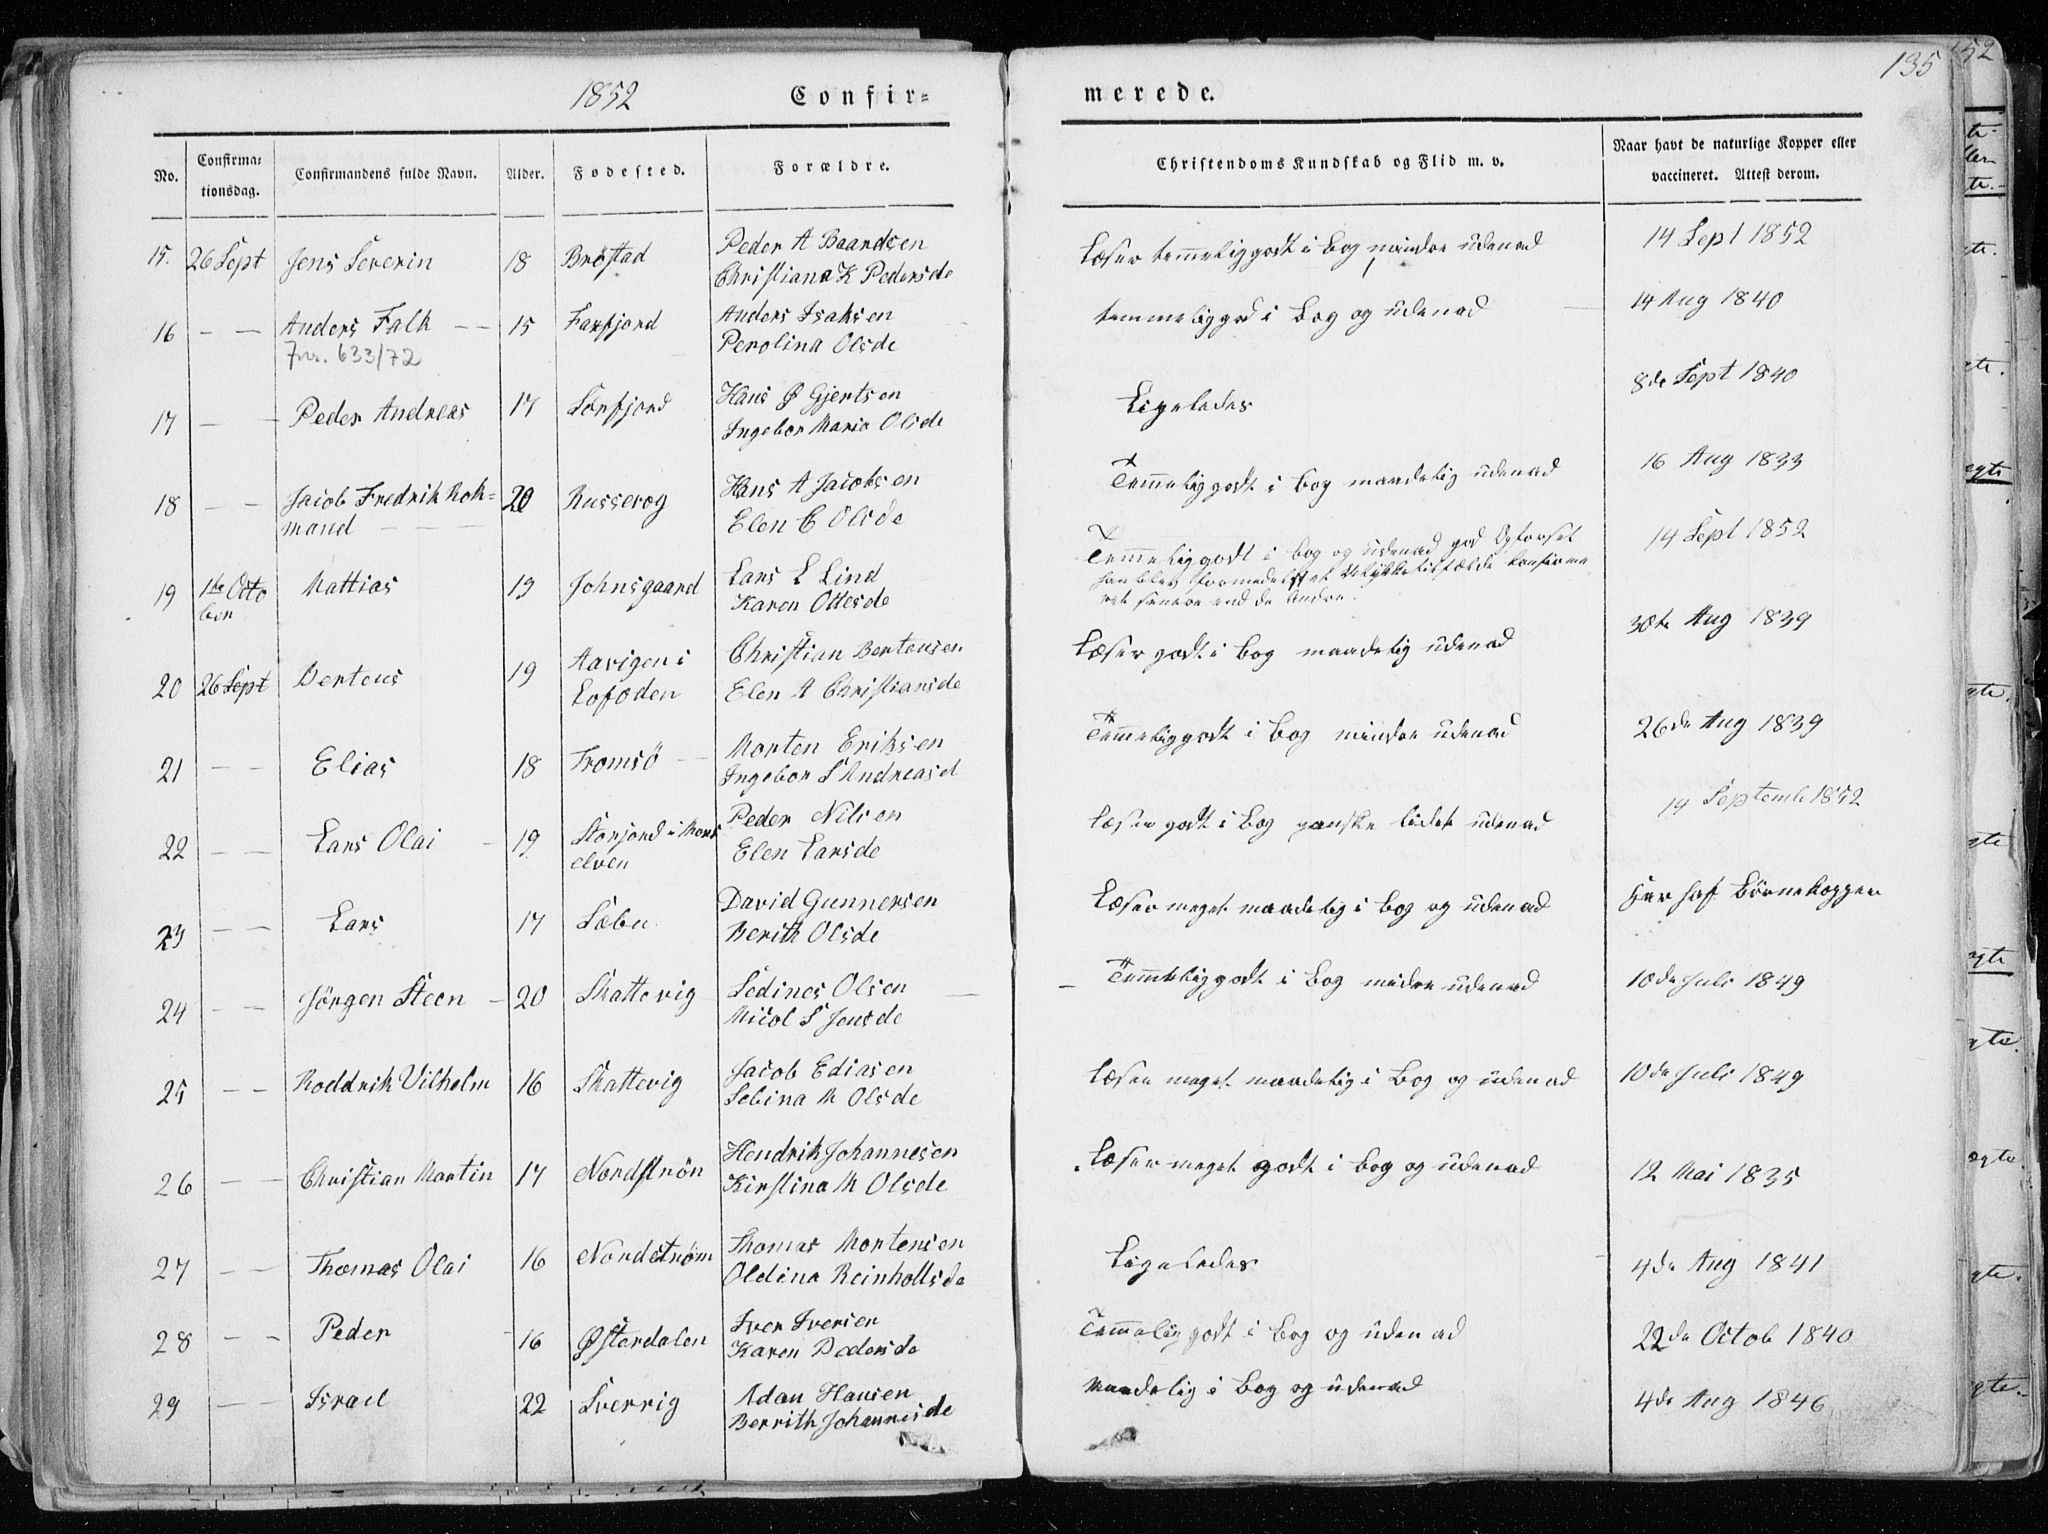 1852 Confir=
merede. 135
52
No. Confirma=tionsdag. Confirmandens fulde Navn. Alder. Fødested. Forældre. Christendoms Kundskab og Flid m. v. Naar havt de naturlige Kopper eller vaccineret. Attest derom.
15. 26 Sept Jens Severin 18 Bröstad Peder A Baardsen
Christiana K Pedersde Læser temmelig godt i Bog mindre udenad 14 Sept 1852
16 — — Anders Falk — — 15 Faxfjord Anders Isaksen
Jnr. 633/72 Perolina Olsde temmelig god i Bog og udenad 14 Aug 1840
17 — — Peder Andreas 17 Sörfjord Hans Gjertsen
Ingebor Maria Olsde Ligeledes 8de Sept 1840
18 — — Jacob Fredrik Rok=
mand — — — 20 Russevog Hans A Jacobsen
Elen C Olsde Temmelig godt i Bog maadelig udenad 16 Aug 1833
19 1ste Octo
ber Mattias 19 Johnsgaard Lars L Lind
Karen Ottesde Temmelig godt i Bog og udenad god Opførsel
han blev formedelst et Ulykkestilfælde confirme
ret senere end de Andre. 14 Sept 1852
20 26 Sept Berteus 19 Aavigen i
Lofoden Christian Bertensen
Elen A Christiansde Læser godt i Bog maadelig udenad 30te Aug 1839
21 — — Elias 18 Tromsö — Morten Eriksen
Ingebor S Andreasd Temmelig godt i Bog mindre udenad 26de Aug 1839
22 — — Lars Olai — 19 Storjord i Maals
elven Peder Nilsen
Elen Larsde Læser godt i Bog ganske lidet udenad 14 Septemb 1852
23 — — Lars 17 Sæbu David Gunnersen
Berith Olsde Læser meget maadelig i Bog og udenad Har haf Børnekopper
24 — — Jörgen Steen — 20 Skattevig Sedines Olsen
Micol S Jensde — Temmelig godt i Bog midre udenad 10de Juli 1849
25 — — Roddrik Vilhelm 16 Skattevig Jacob Ediasen
Sebina M Olsde Læser meget maadelig i Bog og udenad 10de Juli 1849
26 — — Christian Martin 17 Nordströn Hendrik Johannesen
Kirstina M Olsde Læser meget godt i Bog og udenad 12 Mai 1835
27 — — Thomas Olai 16 Nordström Thomas Mortensen
Oldina Reinholtsde Ligeledes 4de Aug 1841
28 — — Peder — 16 Østerdalen Iver Iversen
Karen Pedersde Temmelig godt i Bog og udenad 22de Octob 1840
29 — — Israel 22 Sverrig Adan Hansen
Berrith Johannesde maadelig i Bog og udenad 4de Aug 1846